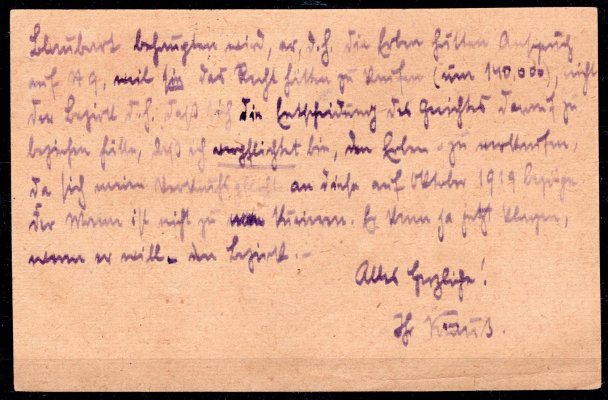 Blaubart behaupten wird, er, d.h. die Erben hätten Anspruch
auf A 9, weil sie das Recht hätten zu kaufen (um 140,000), nicht
der Bezirk d.h. daß sich die Entscheidung des Gerichtes darauf zu
beziehen hätte, daß ich verpflichtet bin, den Erben zu verkaufen,
da sich mein an diese auf Oktober 1919 bezöge
Der Mann ist nicht zu kennen. Er kann ja jetzt klagen,
wenn er will – den Bezirk. –
Alles Herzliche!
Ihr Krauß.